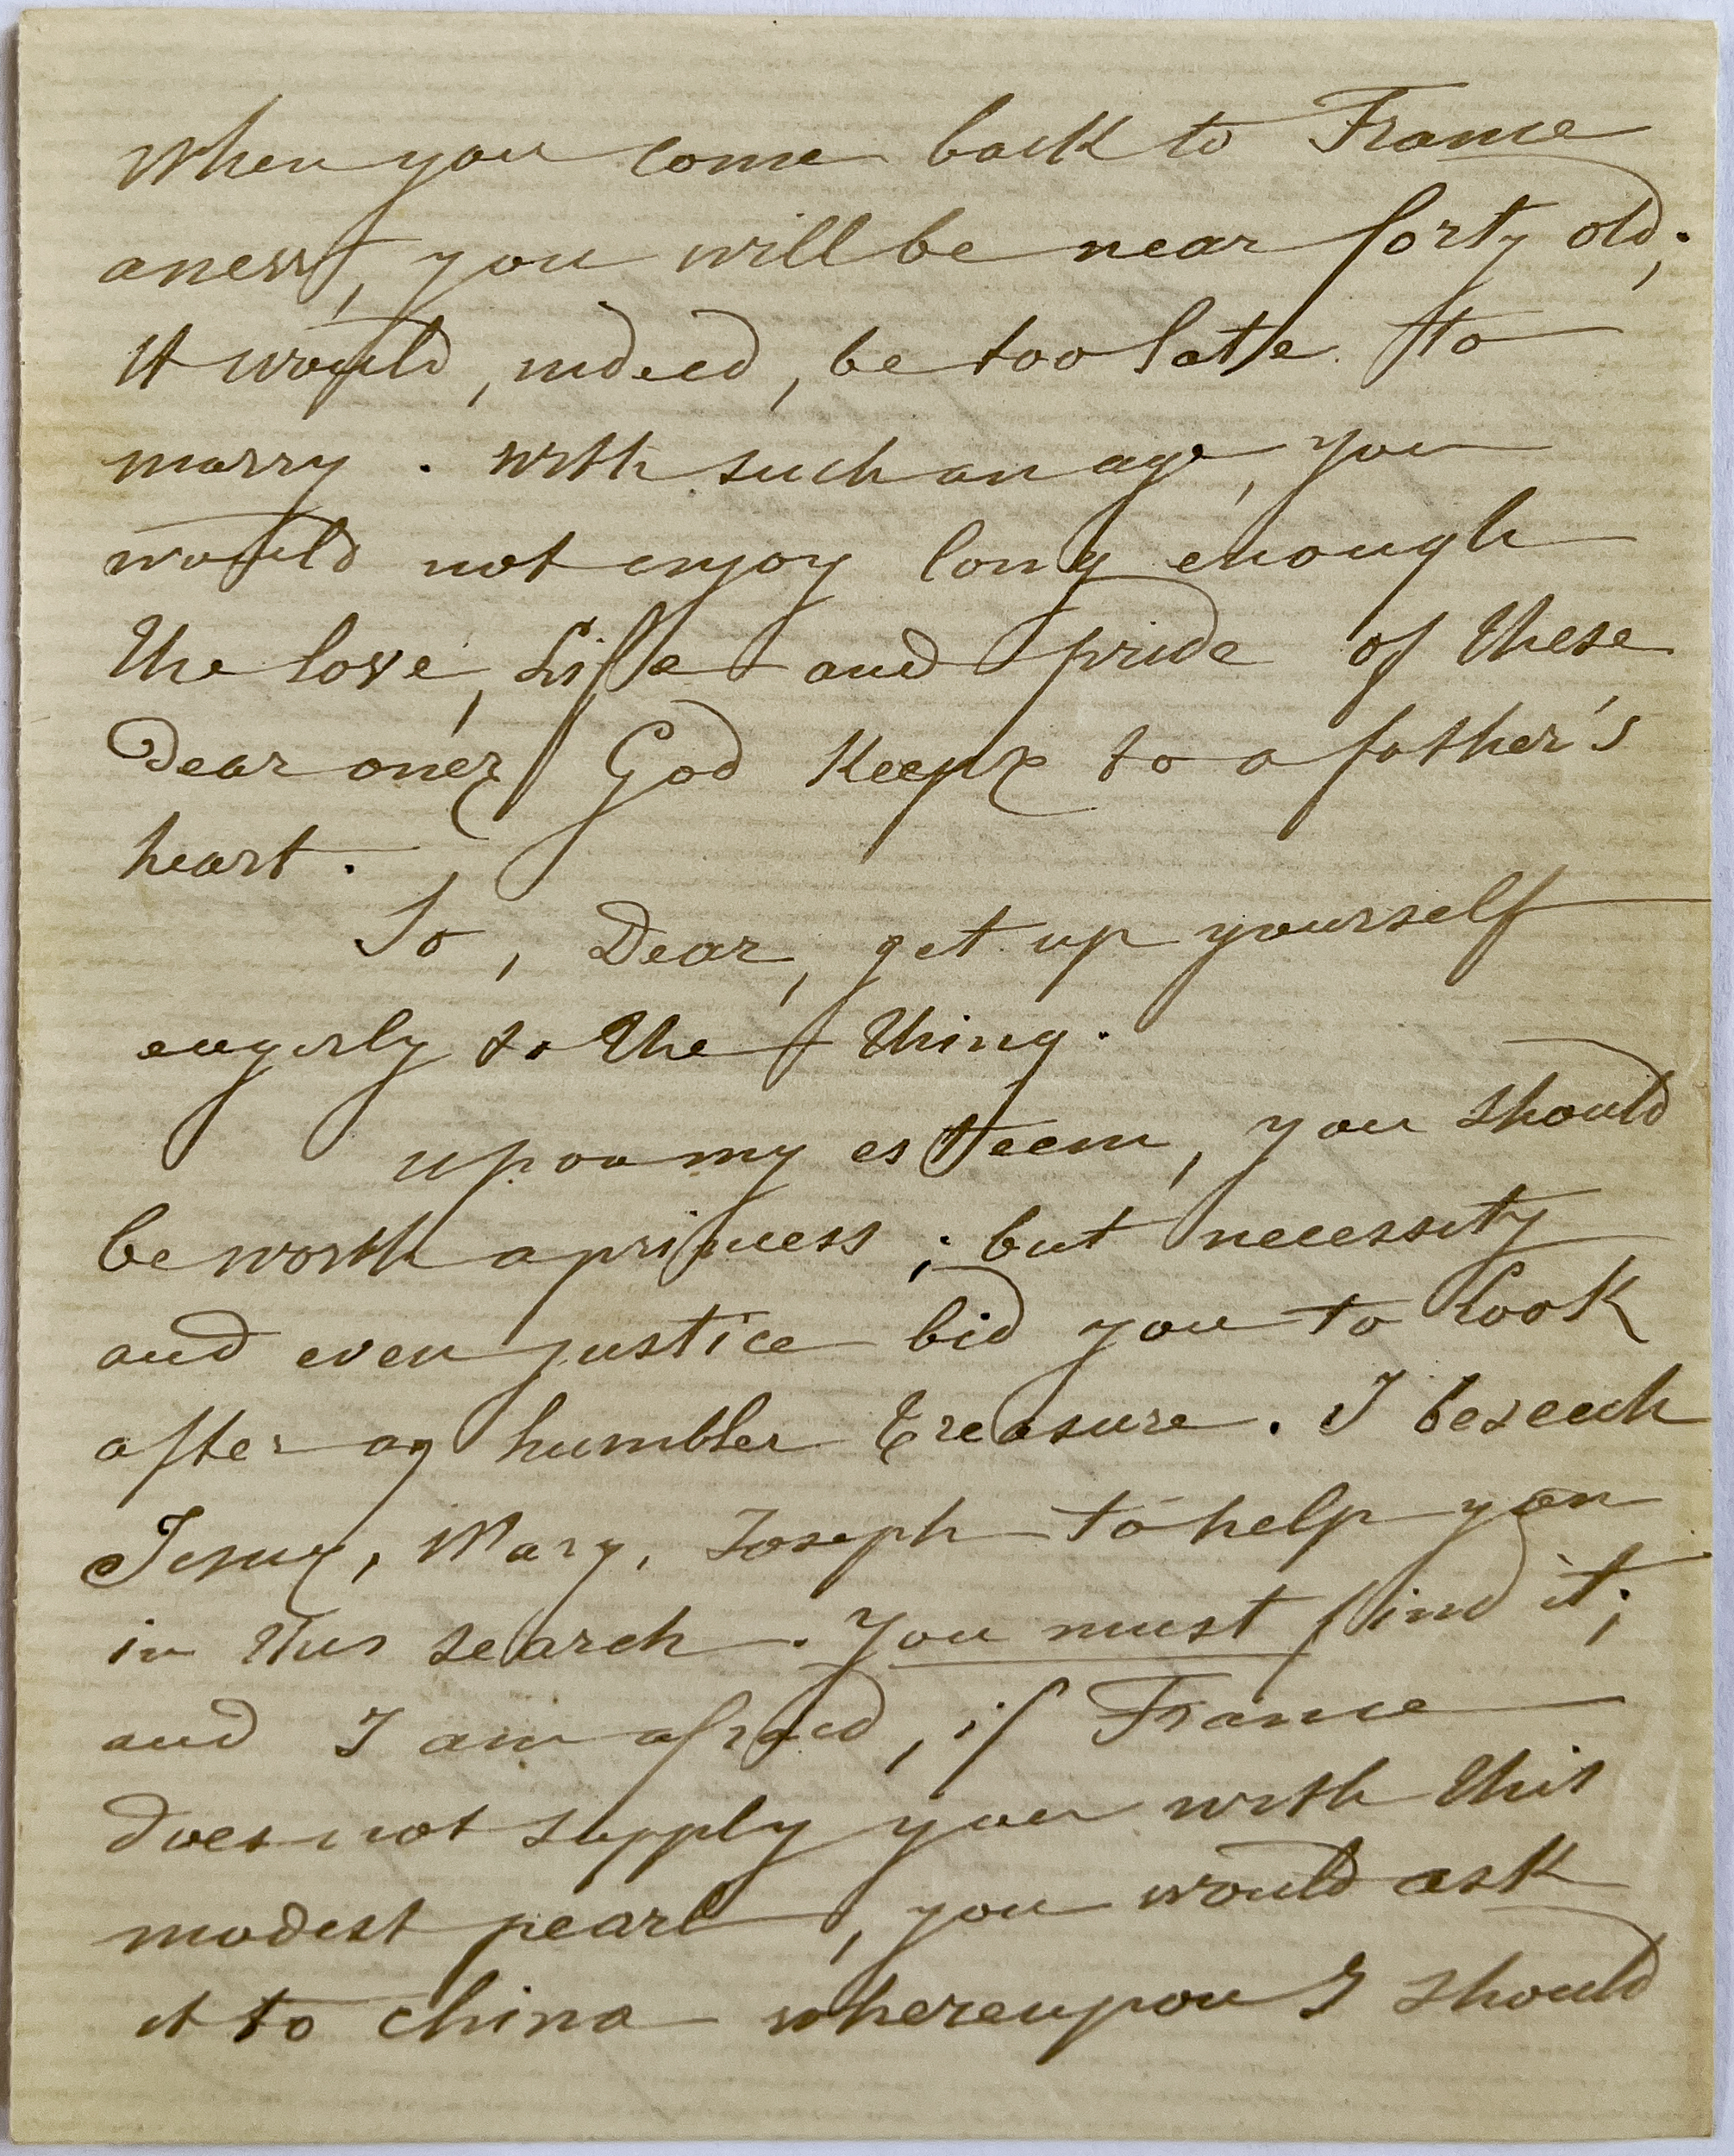 When you come back to France
anew, you will be near forty old;
it would, indeed, be too late to
marry. With such an age, you
would not enjoy long enough
the love, life and pride of these
Dear ones God keeps to a father's
heart.
So, Dear, get up yourself
eagerly to the thing.
upon my esteem, you should
be worth a princess; but necessity
and even justice bid you to look
after an humbler treasure. I beseech
Jesus, Mary, Joseph to help you
in this search. You must find it;
and I am afraid, if France
does not supply you with this
modest pearl, you would ask
it to China whereupon I should